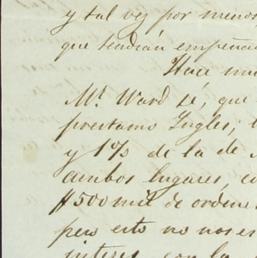 y tal vez por menos
que tendrian empeña
Hace mu
Mr. Ward sé, que
prestamo Ingles;
y 1% de la de
ambos lugares, co
$500 mil de ordene
pero esto no nos e
interes con la